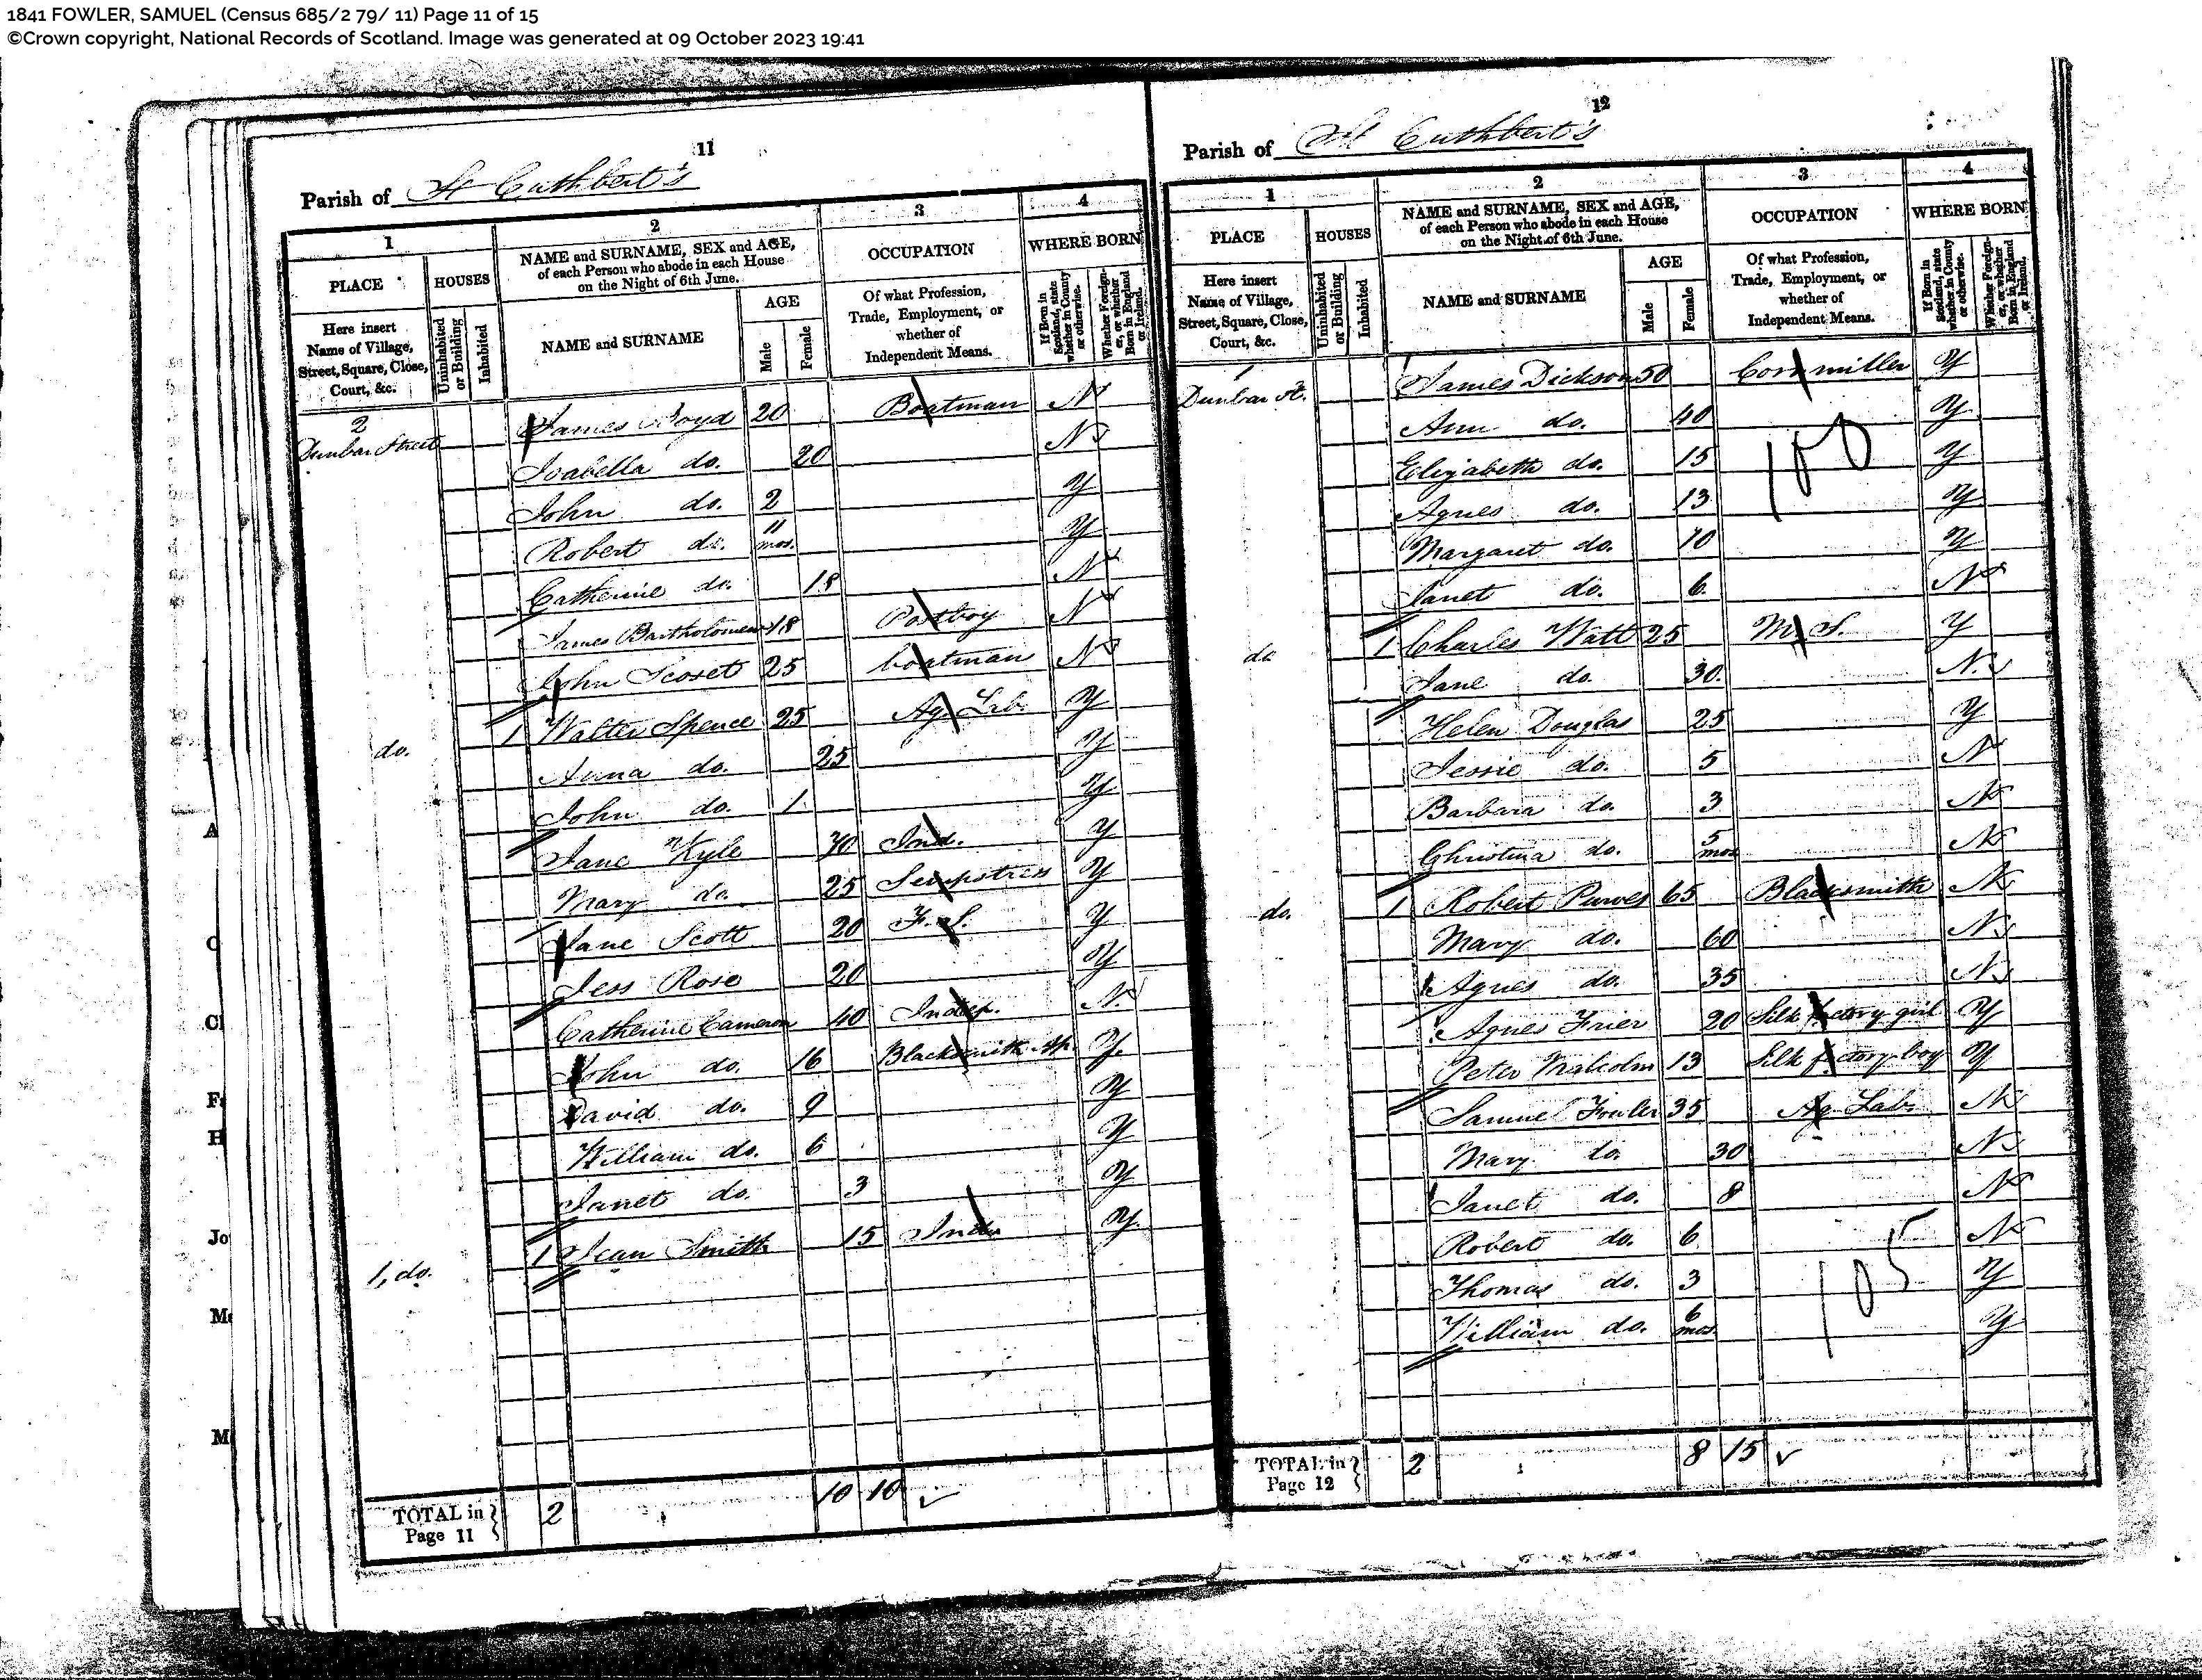 1841 FOWLER, SAMUEL (Census 685/2 79/ 11) Page 11 of 15
©Crown copyright, National Records of Scotland. Image was generated at 09 October 2023 19:41
11
Parish of St Cuthbert's
1 2 3 4
PLACE HOUSES NAME and SURNAME, SEX and AGE, of each Person who abode in each House on the Night of 6th June. OCCUPATION WHERE BORN
Here insert Name of Village, Street, Square, Close, Court, &c. Uninhabited or Building Inhabited NAME and SURNAME AGE Male Female Of what Profession, Trade, Employment, or whether of Independent Means. If Born in Scotland, state whether in County or otherwise. Whether Foreigner, or whether Born in England or Ireland.
2 Dunbar Street James Boyd 20 Boatman N
Isabella do. 20 N
John do. 2 Y
Robert do. 11 mos. Y
Catherine do. 18 N
James Bartholomew 18 Postboy N
John 25 boatman N
do. 1 Walter Spence 25 Ag. Lab. Y
Anna do. 25 Y
John do. 1 Y
Jane Kyle 70 Ind. Y
Mary do. 25 Sempstress Y
Jane Scott 20 F. S. Y
Jess Rose 20 Y
Catherine Cameron 40 Indep. N
John do. 16 Blacksmith Ap. Y
David do. 9 Y
William do. 6 Y
Janet do. 3 Y
1, do. 1 Jean Smith 15 Y
TOTAL in Page 11 2 10 10
12
Parish of St Cuthbert's
1 2 3 4
PLACE HOUSES NAME and SURNAME, SEX and AGE, of each Person who abode in each House on the Night of 6th June. OCCUPATION WHERE BORN
Here insert Name of Village, Street, Square, Close, Court, &c. Uninhabited or Building Inhabited NAME and SURNAME AGE Male Female Of what Profession, Trade, Employment, or whether of Independent Means. If Born in Scotland, state whether in County or otherwise. Whether Foreigner, or whether Born in England or Ireland.
1 Dunbar St. James Dickson 50 Corn miller Y
Ann do. 40 Y
Elizabeth do. 15 100 Y
Agnes do. 13 Y
Margaret do. 10 Y
Janet do. 6 N
do 1 Charles Watt 25 M. S. Y
Jane do. 30 N
Helen Douglas 25 Y
Jessie do. 5 N
Barbara do. 3 N
Christina do. 5 mos N
do. 1 Robert Purves 65 Blacksmith N
Mary do. 60 N
Agnes do. 35 N
Agnes Frier 20 Silk factory girl Y
Peter Malcolm 13 Silk factory boy Y
Samuel Fowler 35 Ag. Lab. N
Mary do. 30 N
Janet do. 8 N
Robert do. 6 N
Thomas do. 3 105 Y
William do. 6 mos. Y
TOTAL in Page 12 2 8 15